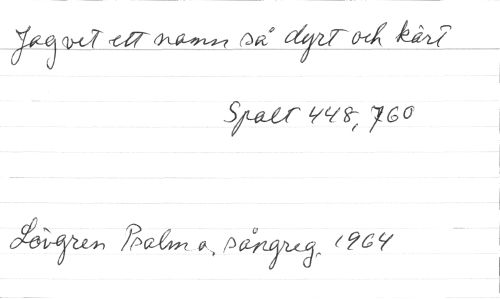 Jag vet ett namn så dyrt och kärt
Spalt 448, 760
Lövgren Psalm o. sångreg. 1964